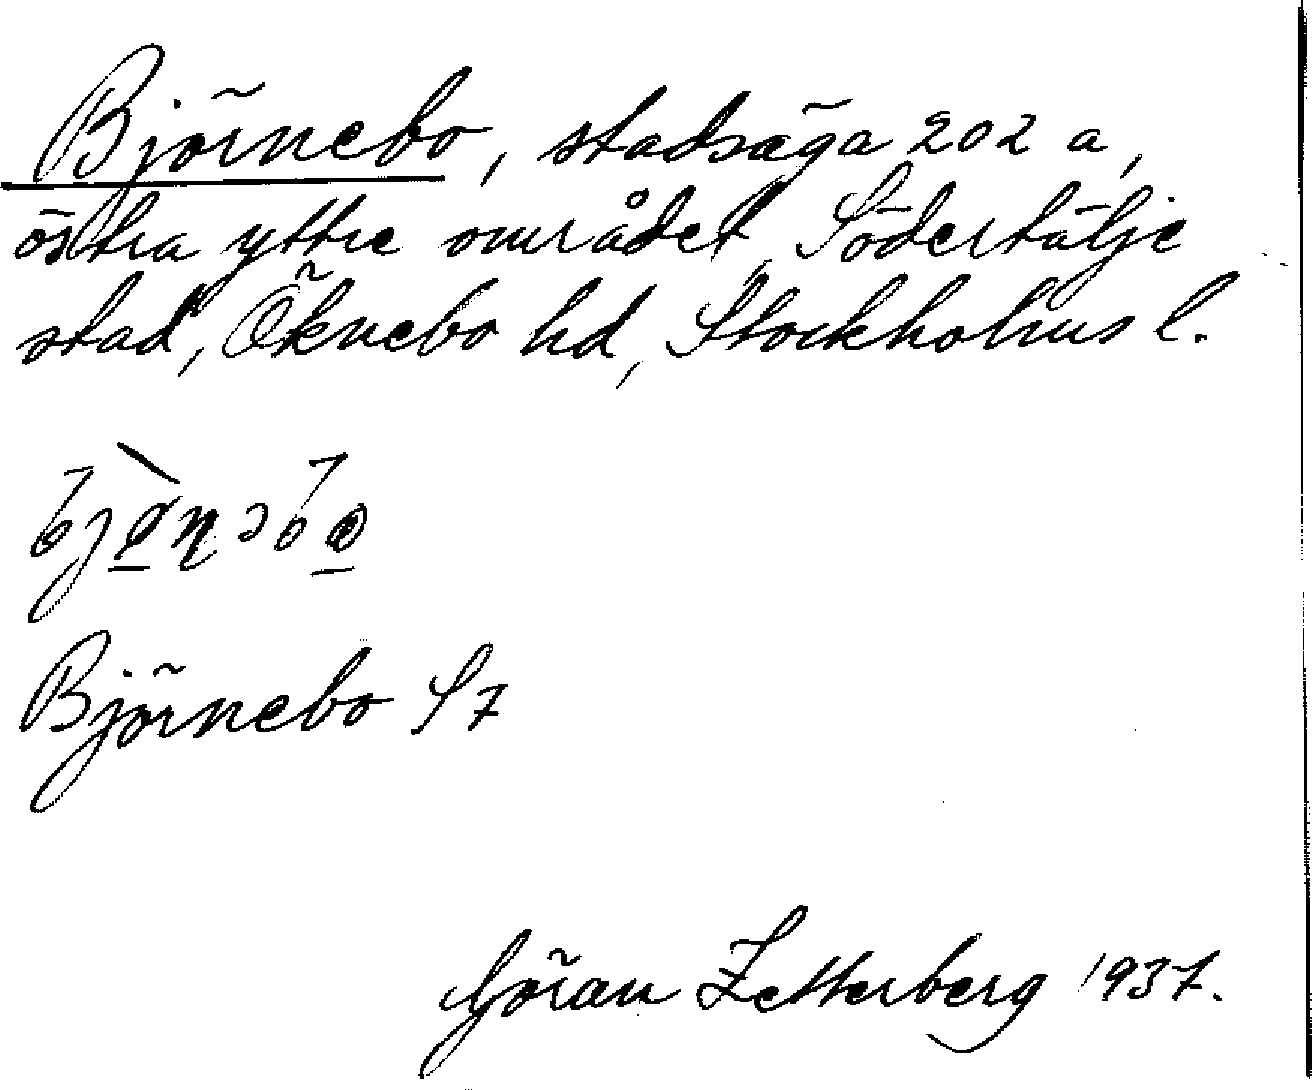 Björnebo, stadsäga 202 a,
östra yttre området, Södertälje
stad, Öknebo hd, Stockholms l.
Björnebo S7
Göran Zetterberg 1937.